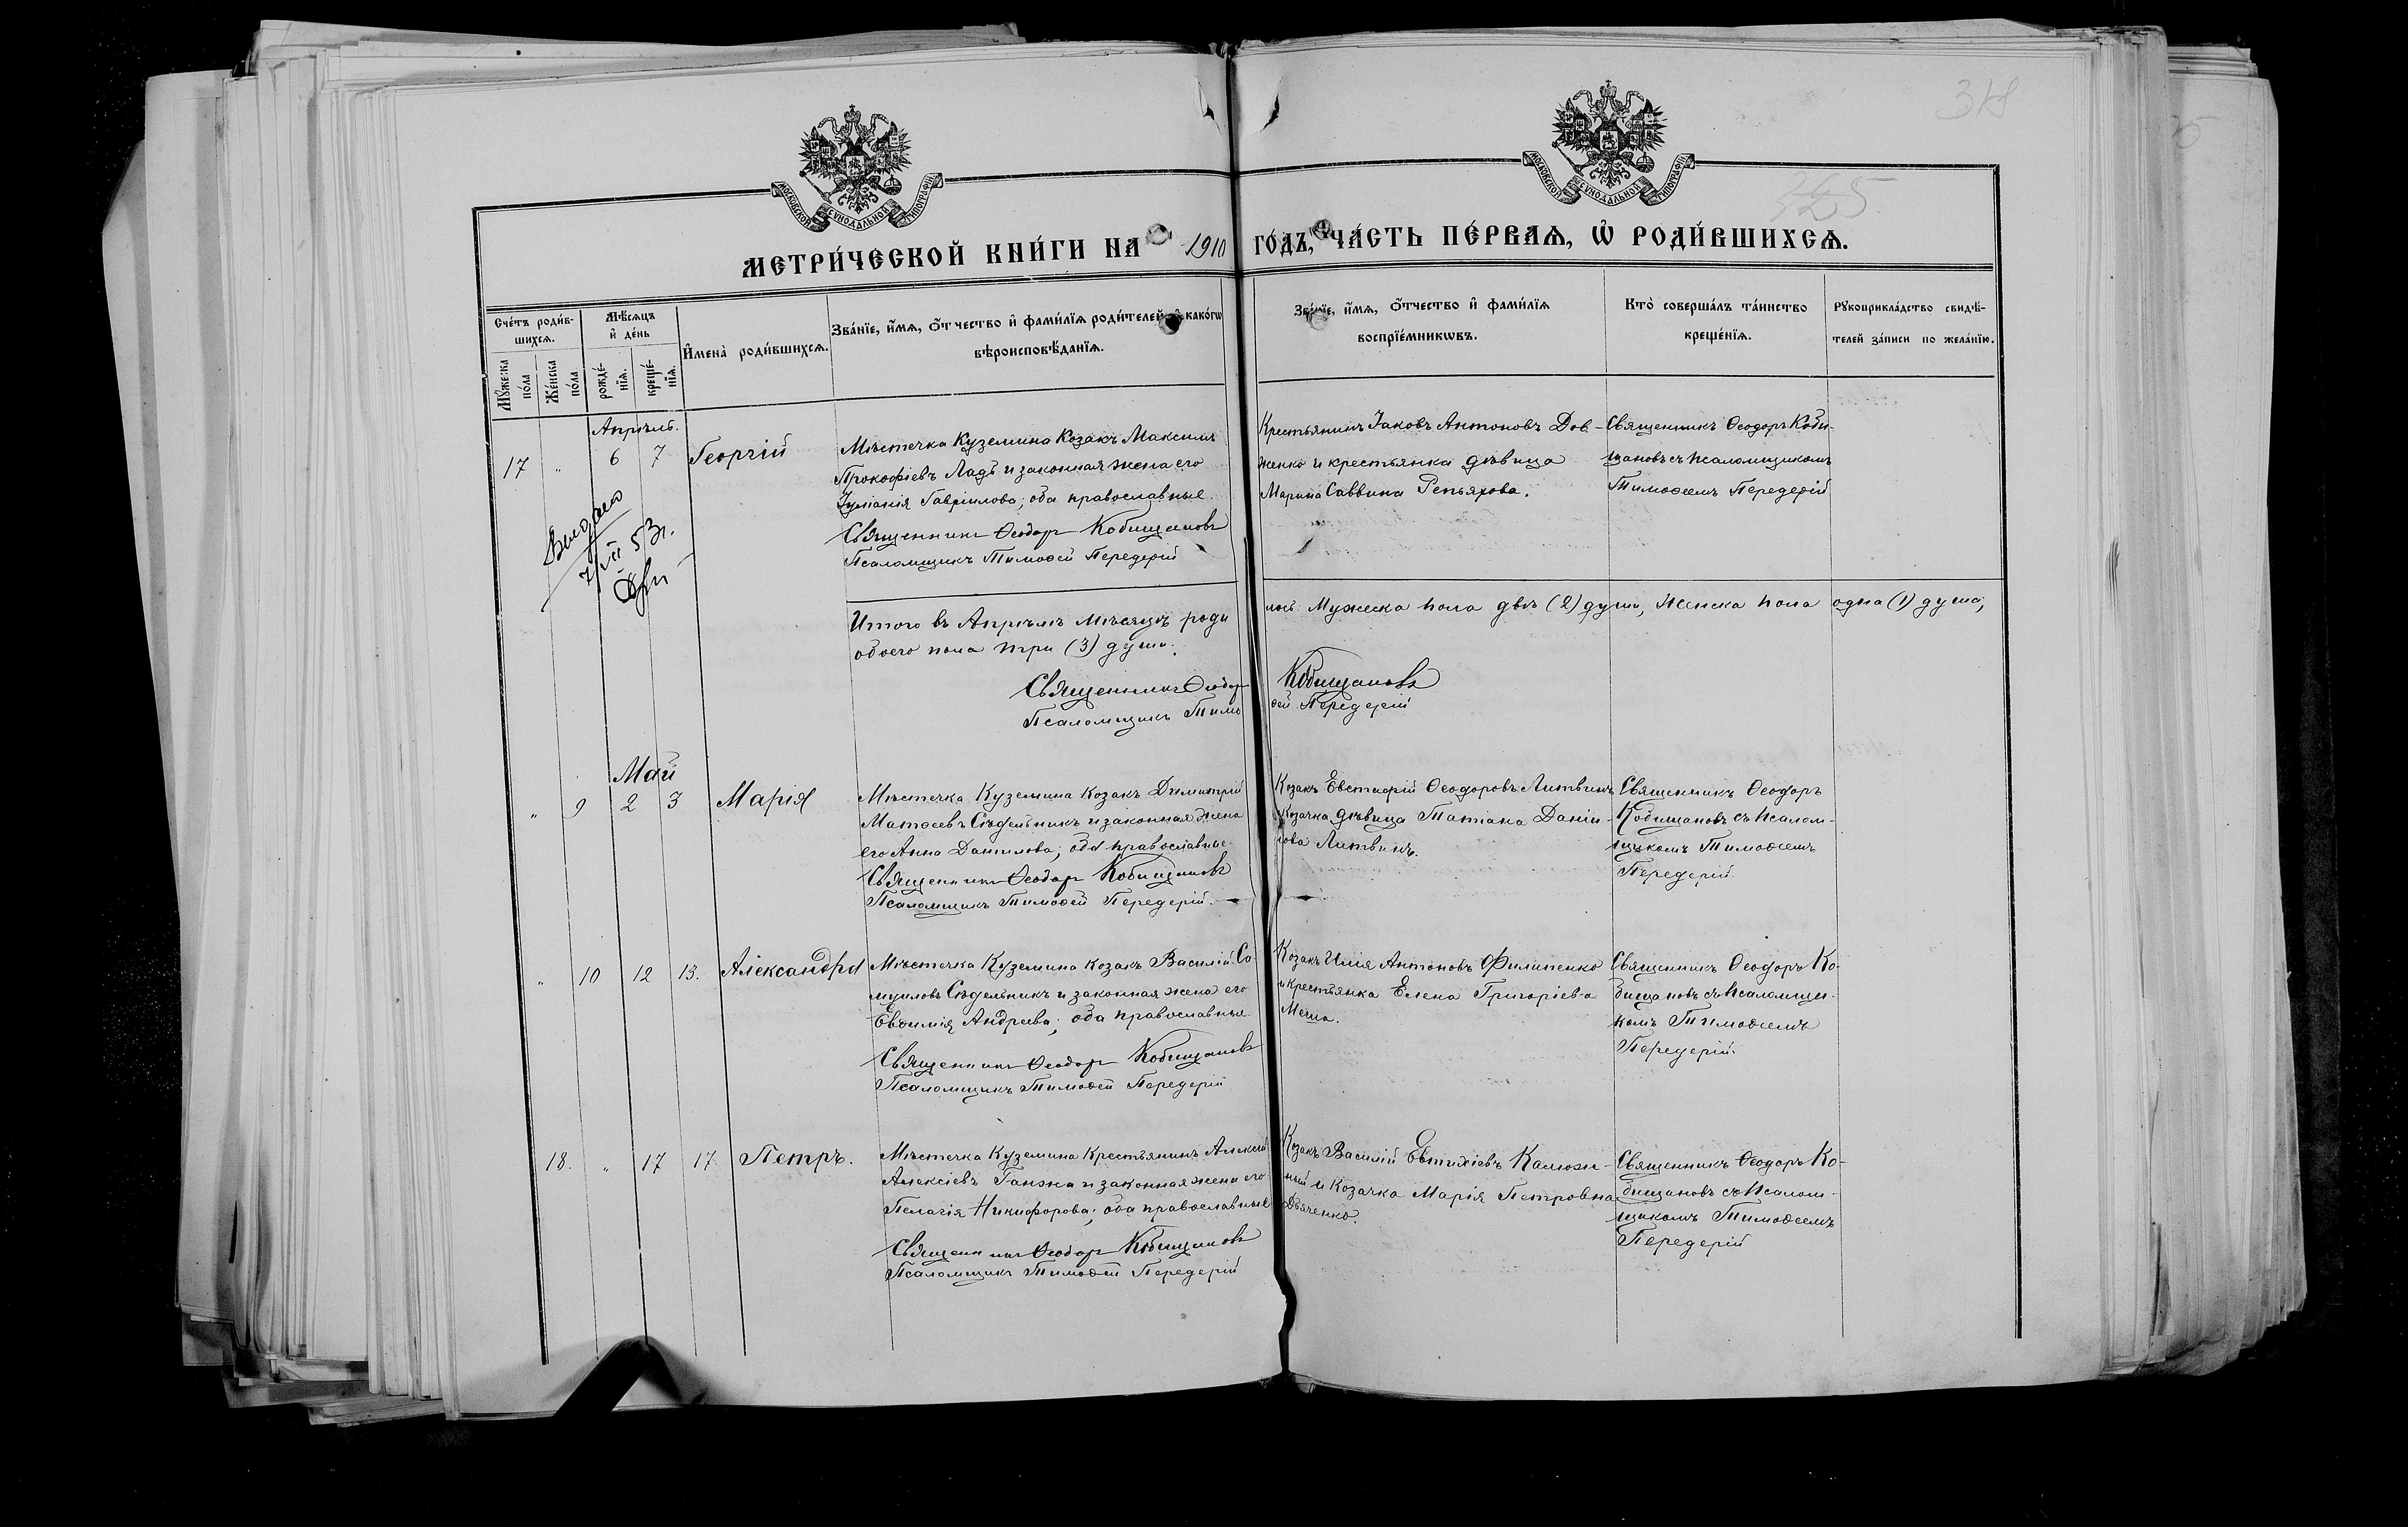 МОСКОВСКОЙ СѴНОДАЛЬНОЙ ТИПОГРАФІИ
МОСКОВСКОЙ СѴНОДАЛЬНОЙ ТИПОГРАФІИ
325.
МЕТРИ́ЧЕСКОЙ КНИ́ГИ НА 1910 ГО́ДЪ, ЧА́СТЬ ПЕ́РВАЯ, Ѡ РОДИ́ВШИХСѦ.
Сче́тъ роди́в-
шихсѧ.
Мꙋ́жеска
по́ла
Же́нска
по́ла
Мѣ́сѧцъ
и҆ де́нь
рожде́-
нїѧ.
креще́-
нїѧ.
И҆мена̀ роди́вшихсѧ.
Зва́нїе, и҆́мѧ, ѻ҆́тчество и҆ фами́лїѧ роди́телей, и҆ како́гѡ
вѣроисповѣ́данїѧ.
Зва́нїе, и҆́мѧ, ѻ҆́тчество и҆ фами́лїѧ
воспрїе́мникѡвъ.
Кто̀ соверша́лъ та́инство
креще́нїѧ.
Рꙋкоприкла́дство свидѣ́-
телей за́писи по жела́нїю.
Апрѣль.
17 " 6 7 Георгій
Мѣстечка Куземина Козакъ Максимъ
Прокофіевъ Ладъ и законная жена его
Гавріилова; оба православные.
Священникъ Ѳеодоръ Кобищановъ
Псаломщикъ Тимоѳей Передерій
Крестьянинъ Іаковъ Антоновъ Дов-
женко и крестьянка дѣвица
Марина Саввина Репьяхова.
Священникъ Ѳеодоръ Коби-
щановъ съ псаломщикомъ
Тимоѳеемъ Передерій
Выдано
Итого въ Апрѣлѣ мѣсяцѣ роди лось: Мужеска пола двѣ (2) души, Женска пола одна (1) душа,
обоего пола три (3) души.
Священникъ Ѳеодоръ Кобищановъ
Псаломщикъ Тимо ѳей Передерій
Май
" 9 2 3 Марія
Мѣстечка Куземина козакъ Димитрій
Матѳеевъ Сѣдельникъ и законная жена
его Анна Данилова; оба православные.
Священникъ Ѳеодоръ Кобищановъ
Псаломщикъ Тимоѳей Передерій.
Козакъ Евстафій Ѳеодоровъ Литвинъ
Козачка дѣвица Татіана Даніи-
лова Литвинъ.
Священникъ Ѳеодоръ
Кобищановъ съ псалом-
щикомъ Тимоѳеемъ
Передерій
" 10 12 13. Александра
Мѣстечка Куземина козакъ Василій Са-
муиловъ Сѣдельникъ и законная жена его
Евѳимія Андреева; оба православные.
Священникъ Ѳеодоръ Кобищановъ
Псаломщикъ Тимоѳей Передерій
Козакъ Илія Антоновъ Филипенко
и крестьянка Елена Григоріева
Меша.
Священникъ Ѳеодоръ Ко-
бищановъ съ псаломщи-
комъ Тимоѳеемъ
Передерій.
18. " 17 17 Петръ.
Мѣстечка Куземина Крестьянинъ Алексій
Алексіевъ Ганжа и законная жена его
Пелагія Никифорова; оба православные
Священникъ Ѳеодоръ Кобищановъ
Псаломщикъ Тимоѳей Передерій
Козакъ Василій Евтихіевъ Калюж-
ный и козачка Марія Петровна
Дьяченко.
Священникъ Ѳеодоръ Ко-
бищановъ съ псалом-
щикомъ Тимоѳеемъ
Передерій